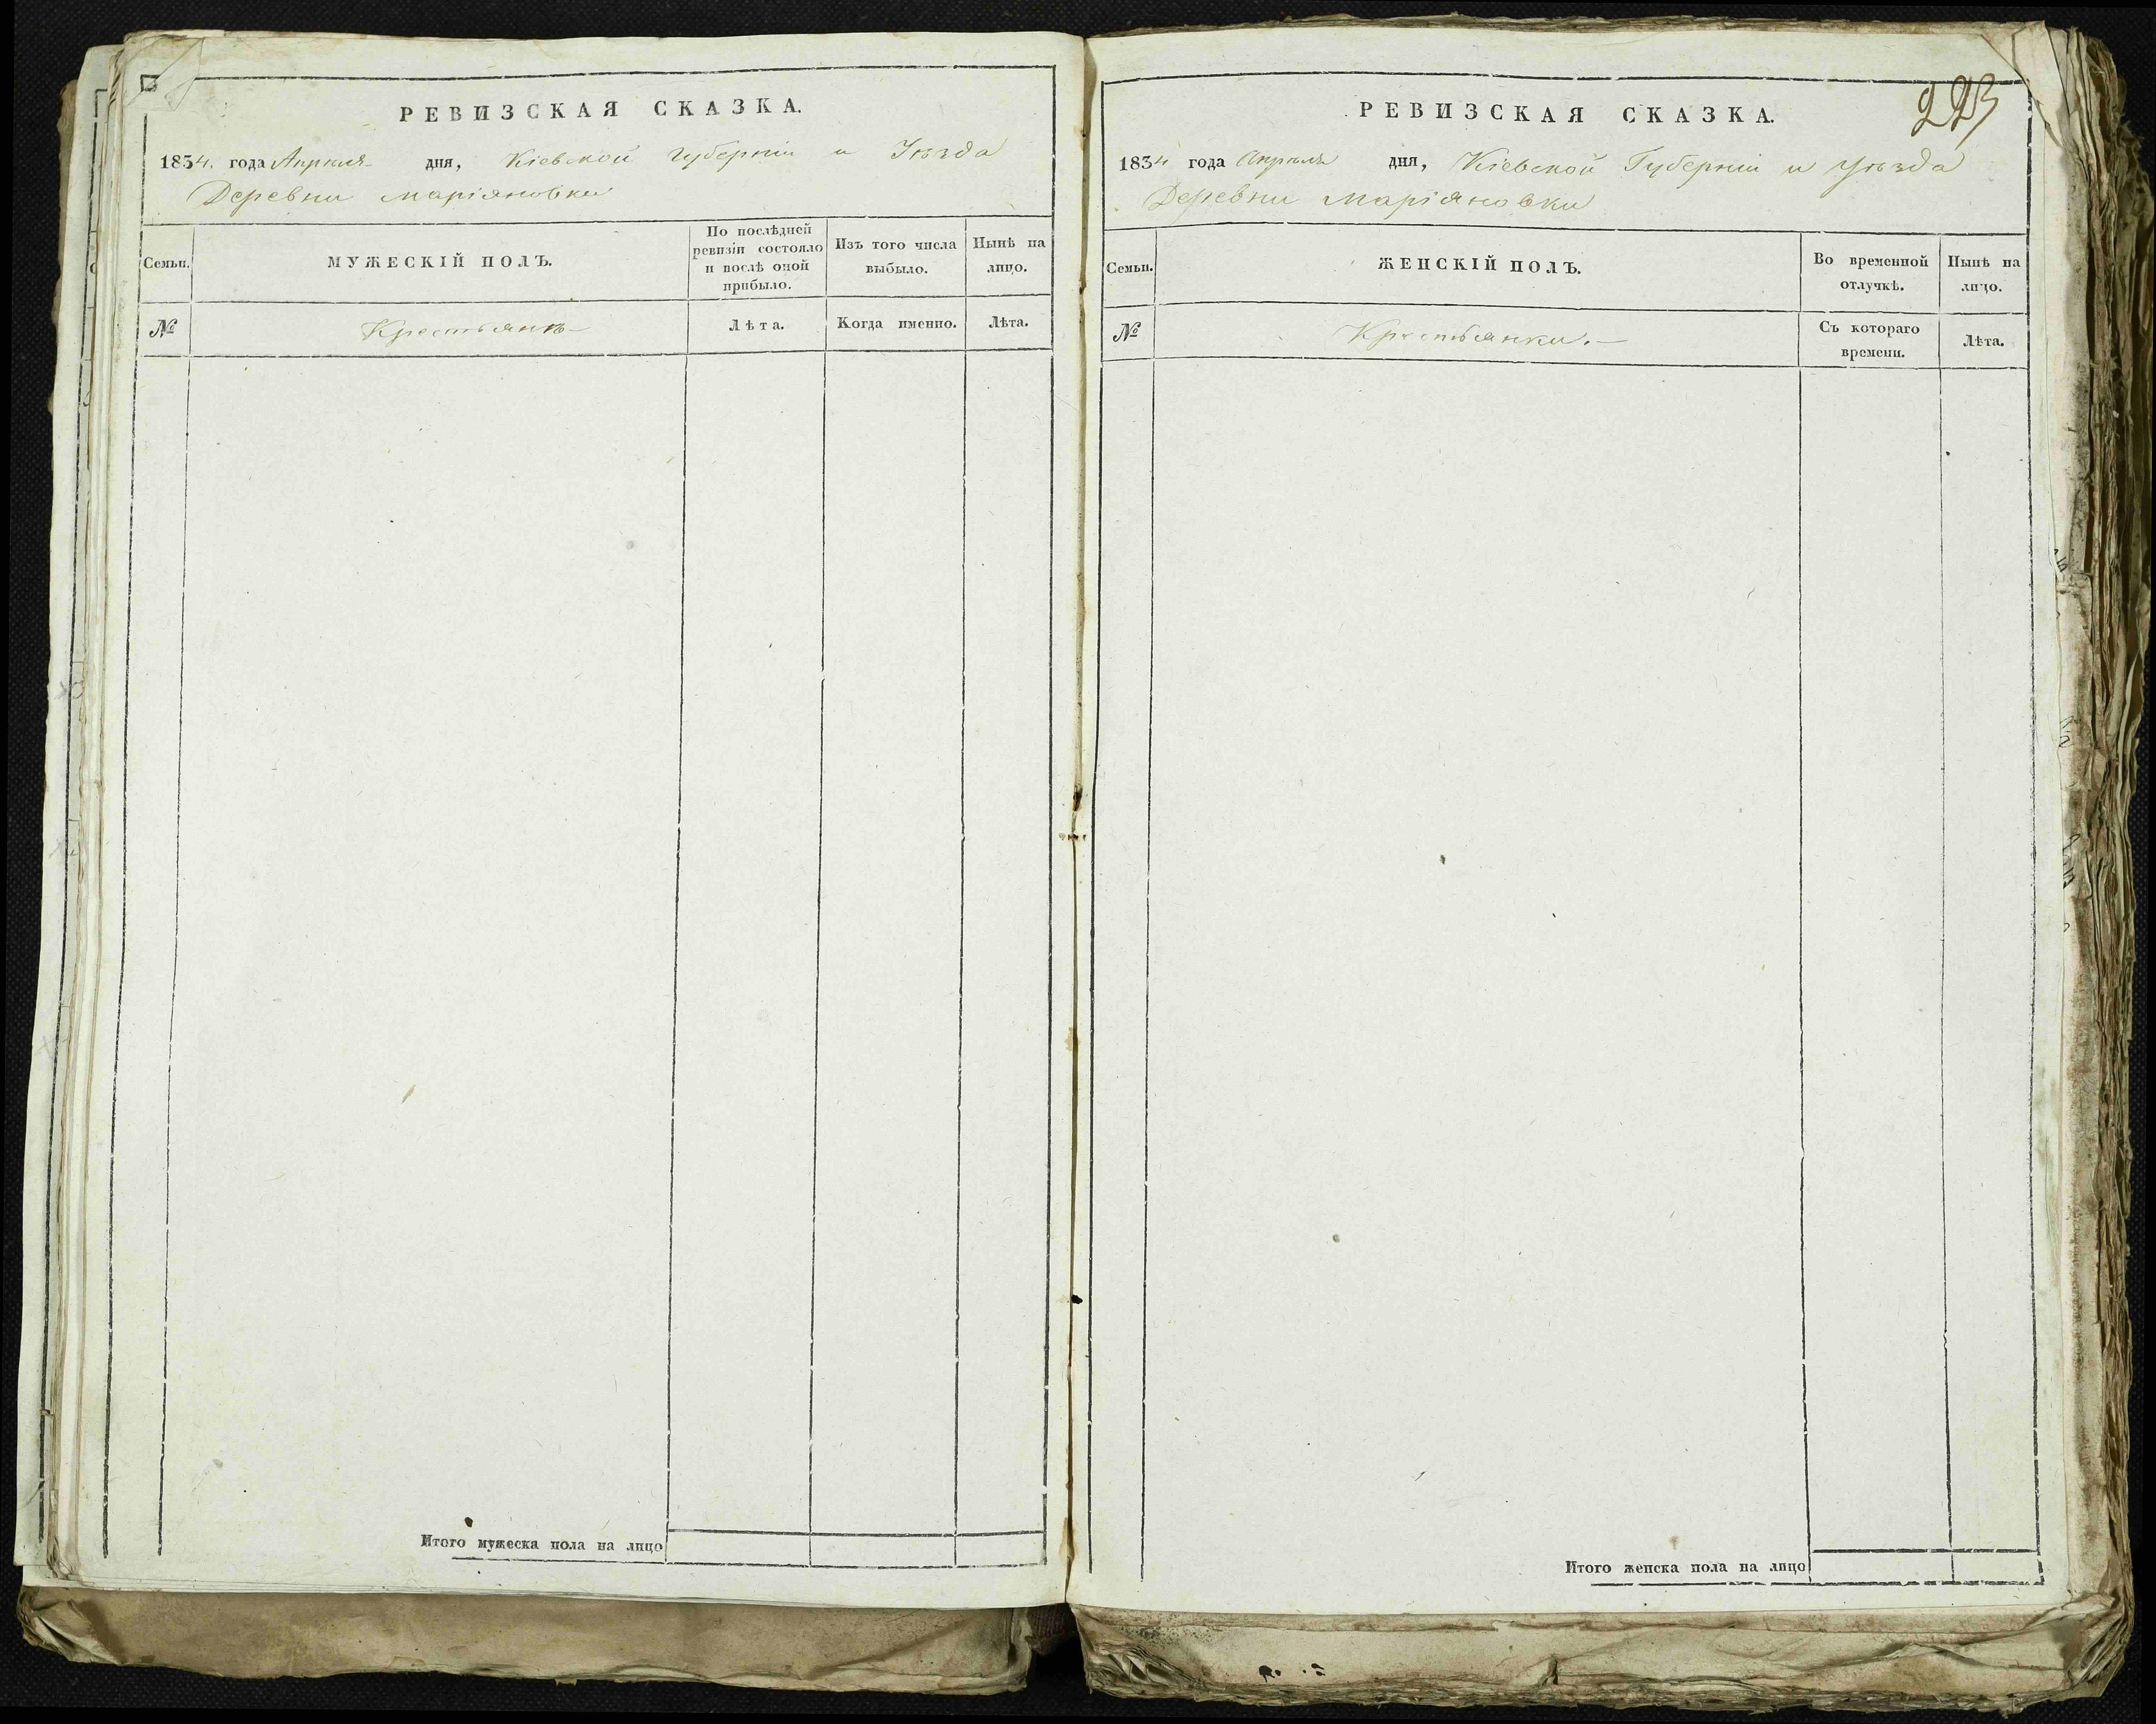 РЕВИЗСКАЯ СКАЗКА.
1834. года Апреля дня, Кіевской губерніи и Уѣзда
Деревни Маріяновки
Семьи.
МУЖЕСКІЙ ПОЛЪ.
По послѣдней
ревизіи состояло
и послѣ оной
прибыло.
Изъ того числа
выбыло.
Нынѣ на
лицо.
№
Крестьянъ
Лѣта.
Когда именно.
Лѣта.
Итого мужеска пола на лицо
РЕВИЗСКАЯ СКАЗКА.
223
1834 года Апреля дня, Кіевской Губерніи и Уѣзда
Деревни Маріяновки
Семьи.
ЖЕНСКІЙ ПОЛЪ.
Во временной
отлучкѣ.
Нынѣ на
лицо.
№
Крестьянки.
Съ котораго
времени.
Лѣта.
Итого женска пола на лицо